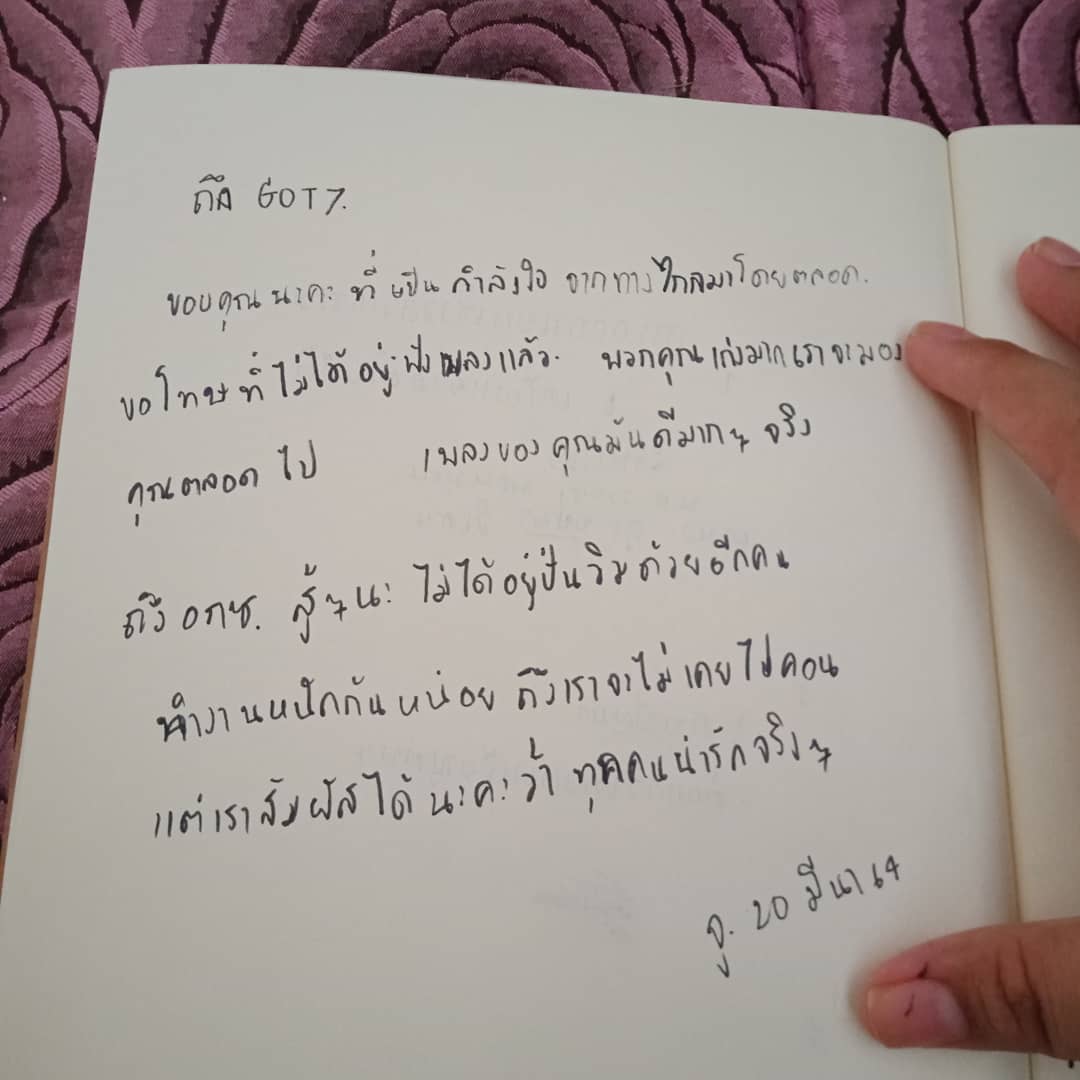 ถึง GOT7.
ขอบคุณนะคะ ที่เป็นกำลังใจ จากทางไกลมาโดยตลอด.
ขอโทษที่ไม่ได้อยู่ฟังเพลงแล้ว. พวกคุณเก่งมากเราจะมอง
คุณตลอดไป เพลงของคุณมันดีมากๆ จริง
ถึง อกซ. สู้ๆนะ ไม่ได้อยู่ปั่นวิวด้วยอีกคน
ทำงานหนักกันหน่อย ถึงเราจะไม่เคยไปคอน
แต่เราสัมผัสได้นะคะว่า ทุกคนน่ารักจริงๆ
จู. 20 มีนา 64